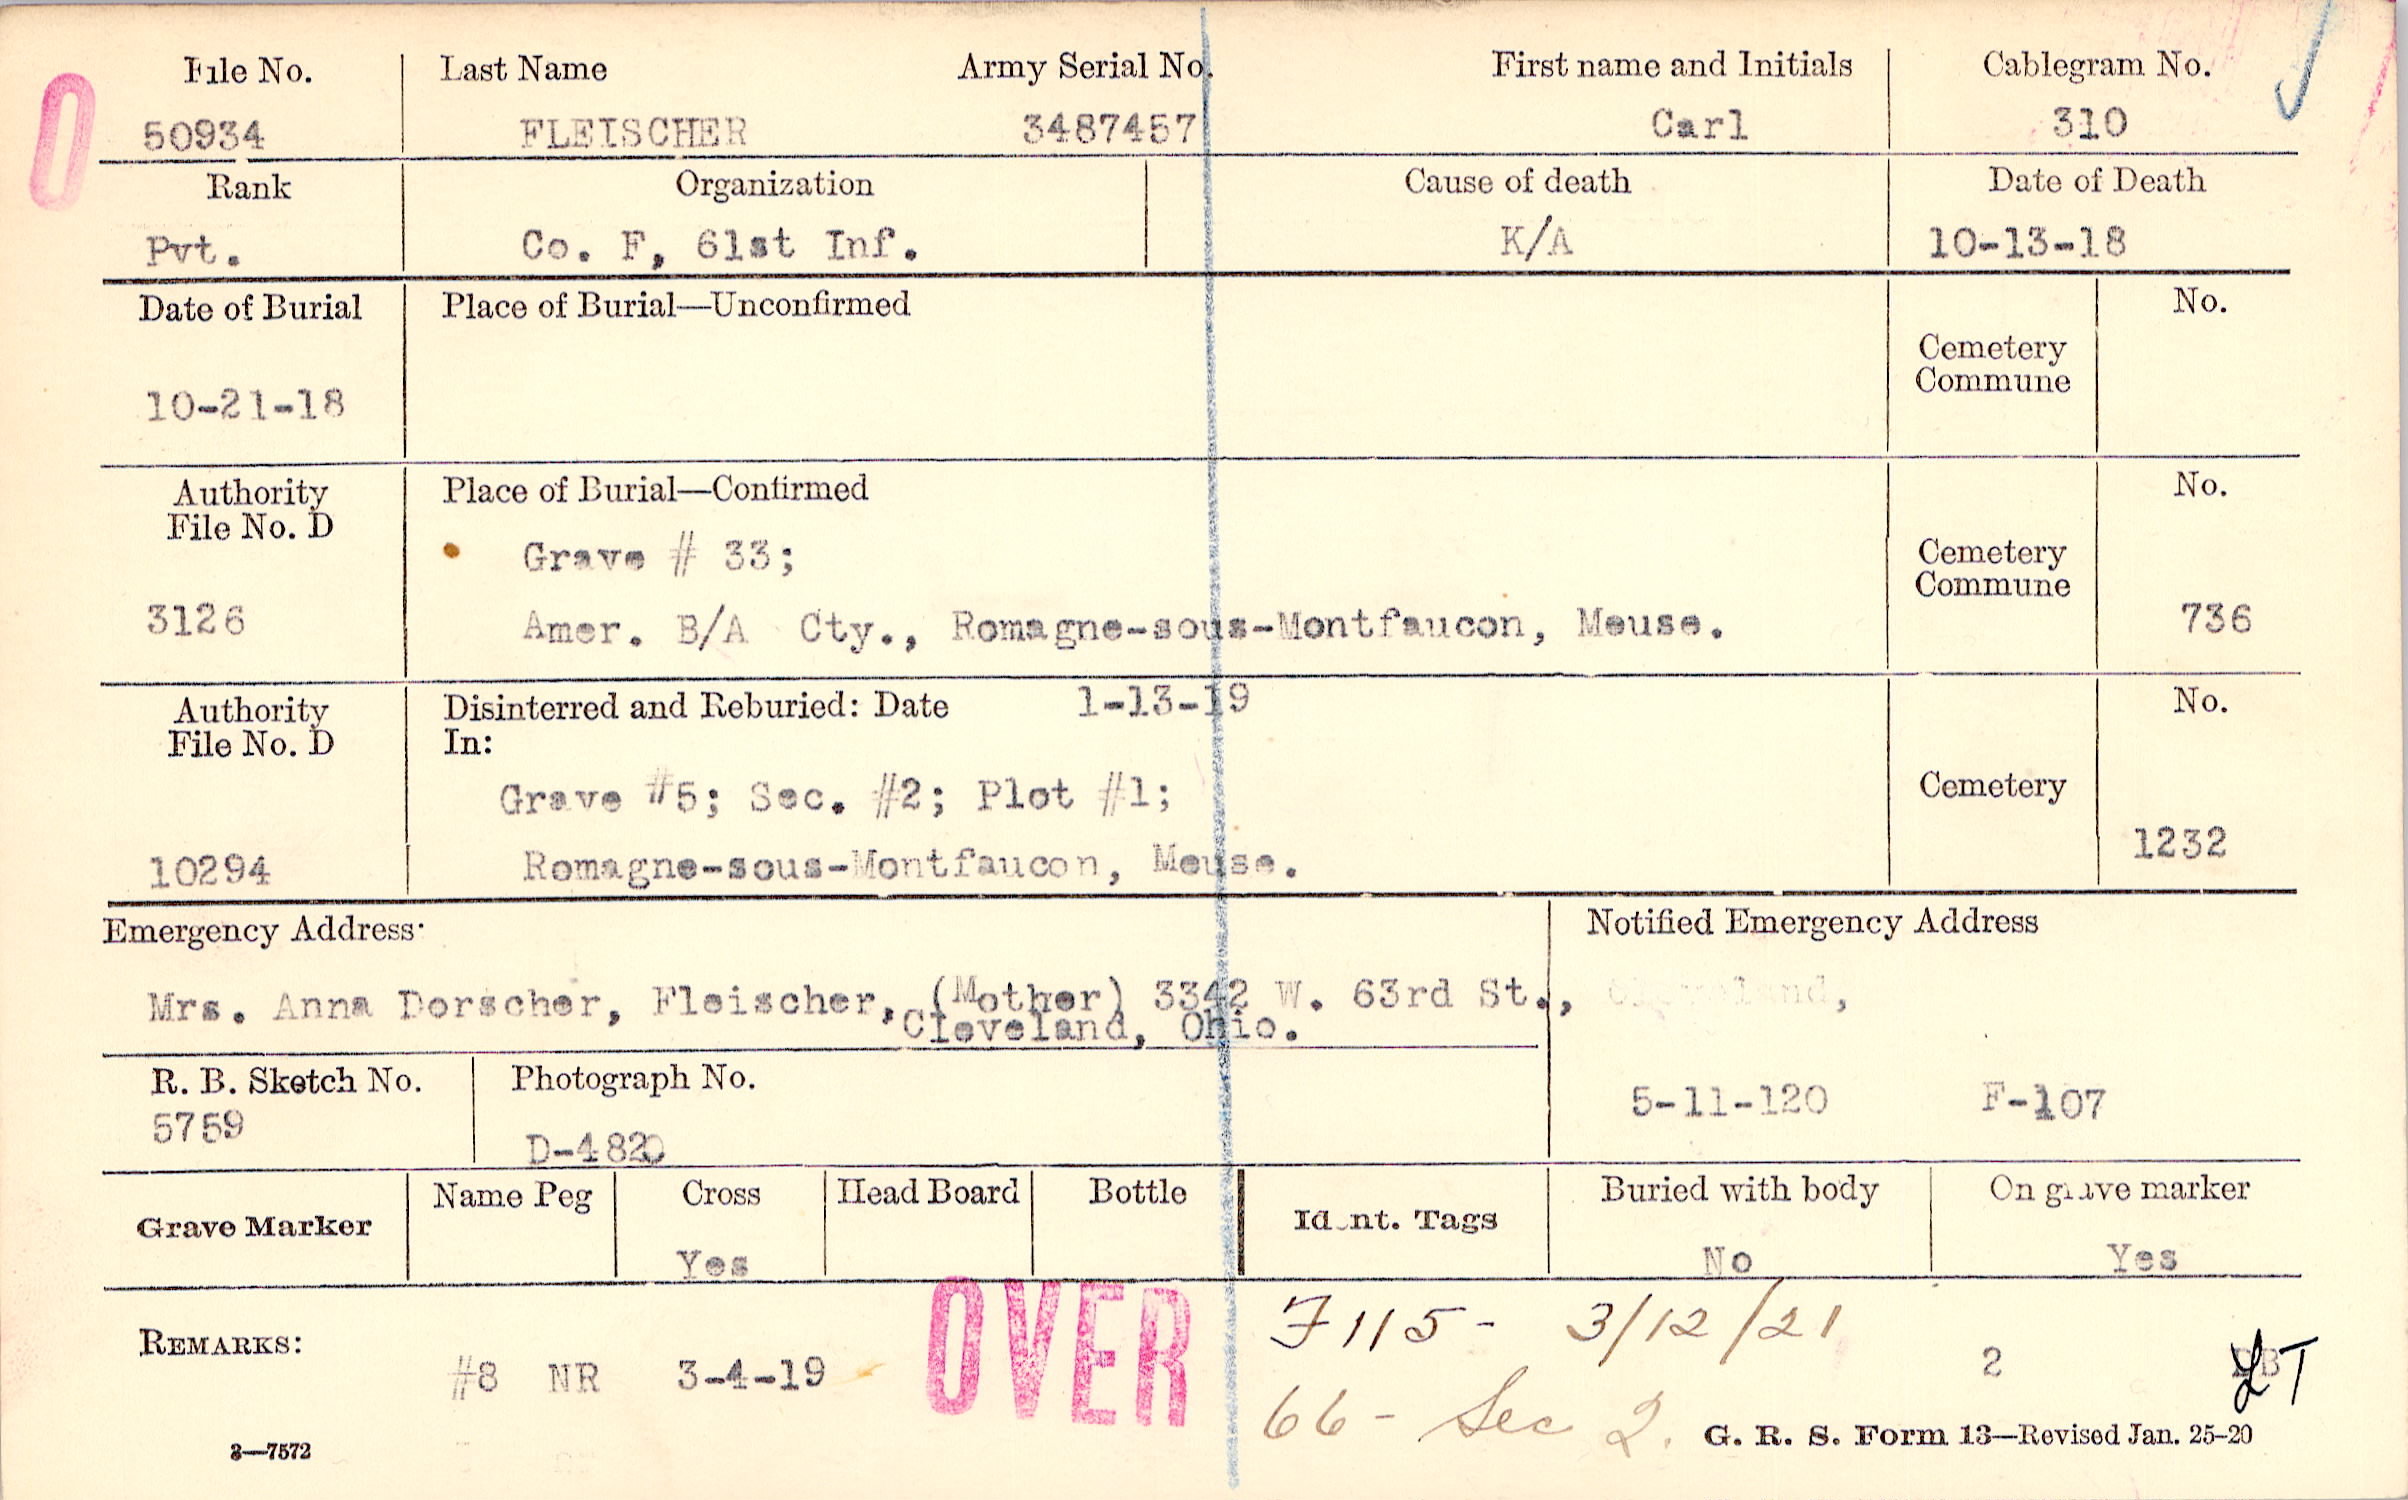 O
File No. Last Name Army Serial No. First name and Initials Cablegram No.
50934 FLEISCHER 3487457 Carl 310
Rank Organization Cause of death Date of Death
Pvt. Co. F, 61st Inf. K/A 10-13-18
Date of Burial Place of Burial—Unconfirmed No.
Cemetery
Commune
10-21-18
Authority Place of Burial—Confirmed No.
File No. D
Grave # 33; Cemetery
Commune
3126 Amer. B/A Cty., Romagne-sous-Montfaucon, Meuse. 736
Authority Disinterred and Reburied: Date 1-13-19 No.
File No. D In:
Grave #5; Sec. #2; Plot #1; Cemetery
10294 Romagne-sous-Montfaucon, Meuse. 1232
Emergency Address: Notified Emergency Address
Mrs. Anna Dorscher, Fleischer, (Mother) 3342 W. 63rd St., Cleveland,
Cleveland, Ohio.
R. B. Sketch No. Photograph No.
5759 D-4820 5-11-120 F-107
Grave Marker Name Peg Cross Head Board Bottle Ident. Tags Buried with body On grave marker
Yes No Yes
REMARKS: #8 NR 3-4-19 OVER F115- 3/12/21 2 LT
66 - Sec 2.
3—7572 G. R. S. Form 13—Revised Jan. 25-20